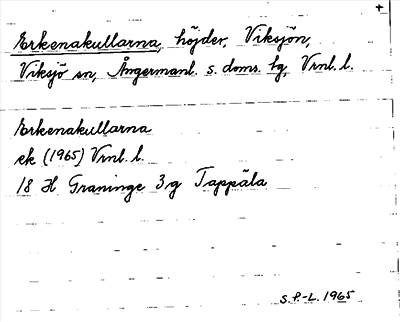 +
Erkenakullarna, höjder, Viksjön,
Viksjö sn, Ångermanl. s. doms. tg, Vrnl. l.
Erkenakullarna
ek (1965) Vrnl. l.
18 H Graninge 3g Tappäla
S.P.-L. 1965